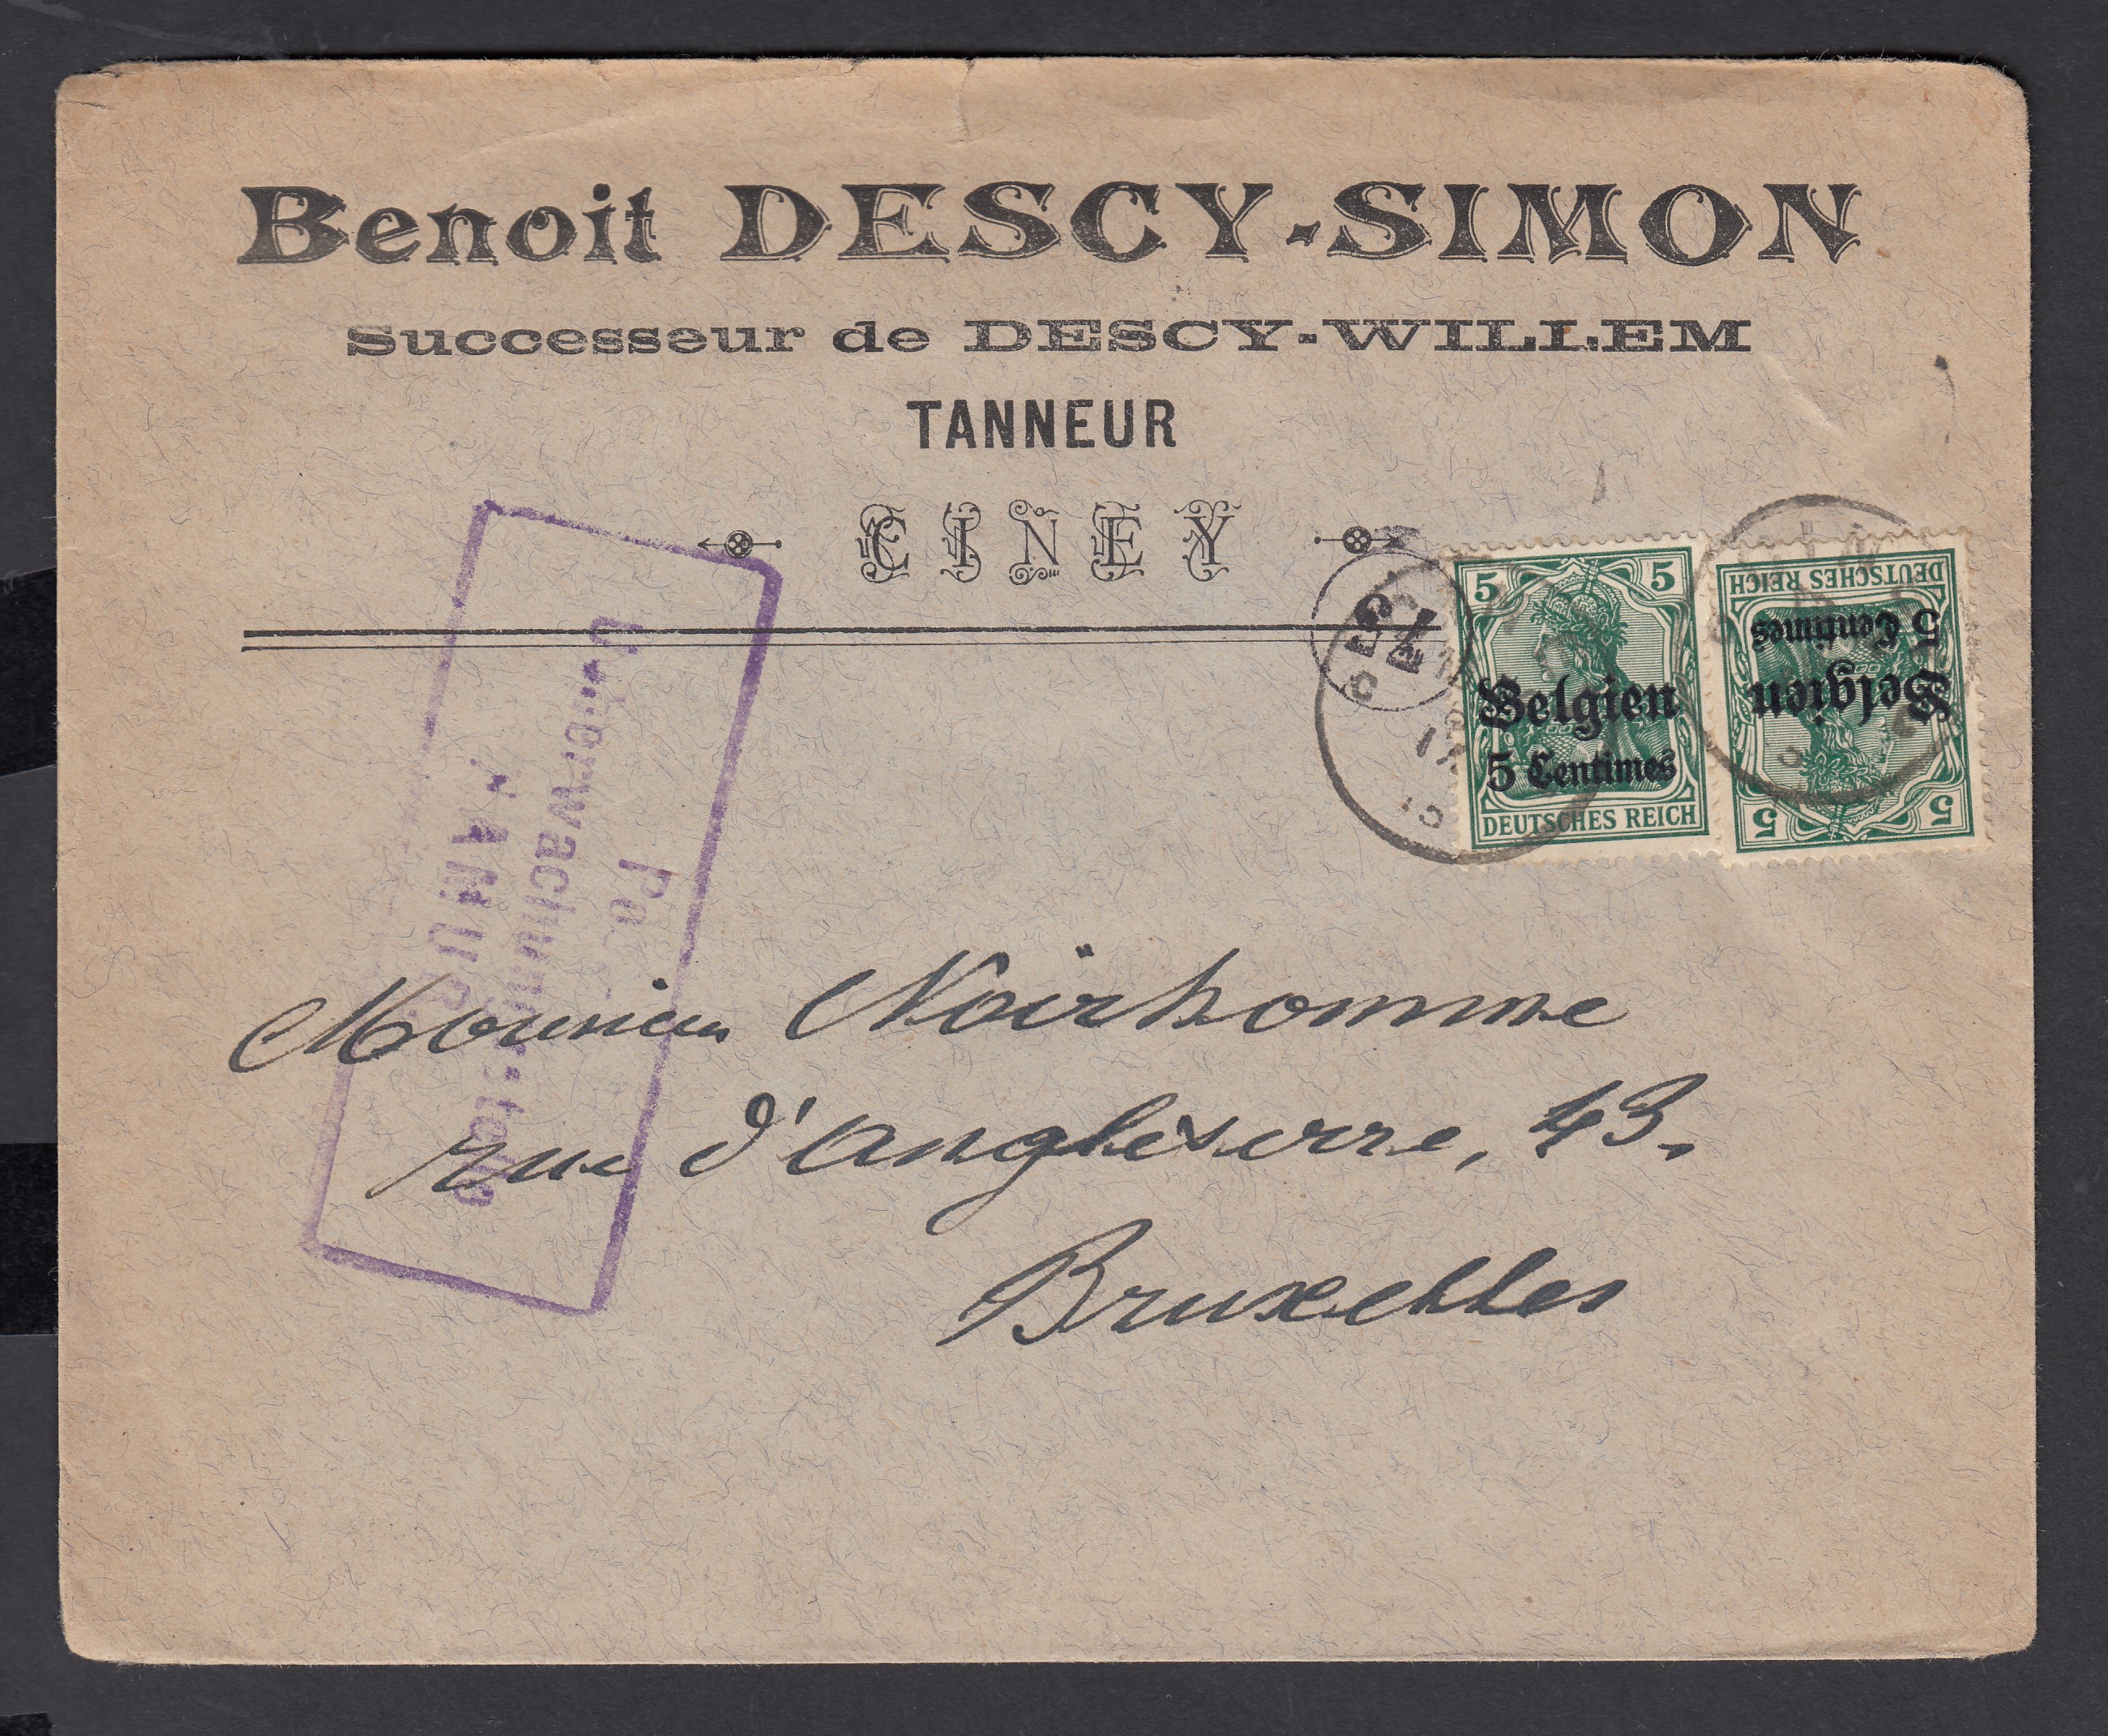 Benoit DESCY-SIMON
Successeur de DESCY-WILLEM
TANNEUR
CINEY
5 5
Belgien
5 Centimes
DEUTSCHES REICH
DEUTSCHES REICH
5 Centimes
Belgien
5 5
Ueberwachungsstelle
Monsieur Noirhomme
rue d'Anglèterre, 43.
Bruxelles